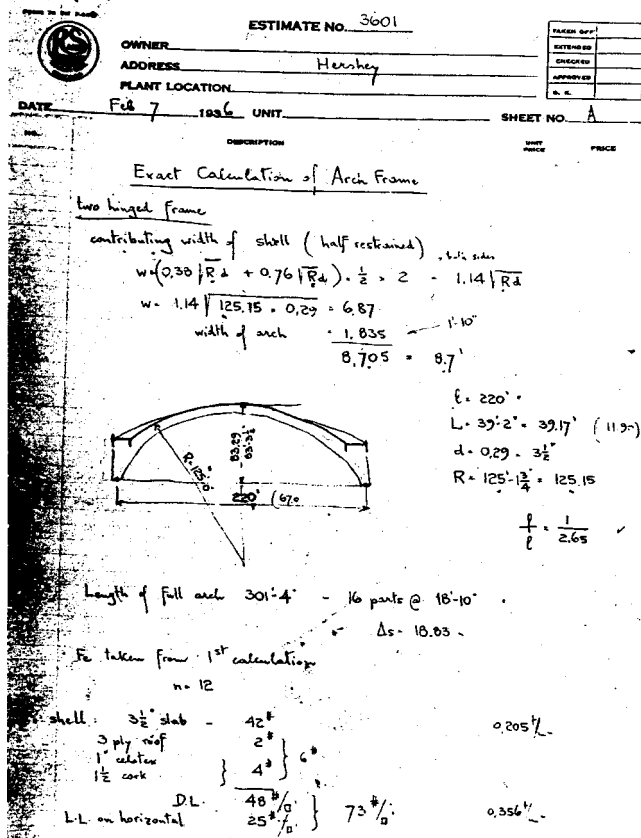 ESTIMATE NO. 3601
OWNER
ADDRESS Hershey
PLANT LOCATION
DATE Feb 7 1936 UNIT
SHEET NO. A
TAKEN OFF
EXTENDED
CHECKED
APPROVED
O. K.
NO.
DESCRIPTION
UNIT PRICE
PRICE
Exact Calculation of Arch Frame
two hinged frame
contributing width of shell (half restrained)
w=(0,38 √R.d + 0,76 √Rd) . ½ . 2 = 1.14 √Rd
w= 1.14 √125,15 . 0,29 = 6,87
width of arch 1,835 1'-10"
8,705 = 8,7'
l = 220'
L = 39'-2" = 39.17'
d = 0,29 = 3½"
R = 125'-1¾" = 125,15
f/l = 1/2,65
R=125'-0"
83,29
83'-3½"
220'
Length of full arch 301'-4" - 16 parts @ 18'-10"
Δs = 18.83
Fe taken from 1st calculation
n = 12
shell: 3½" slab - 42#
0,205
3 ply roof 2#
1" celotex
1½ cork 4#
6#
D.L. 48#/□
L.L. on horizontal 25#/□
73#/□
0,356